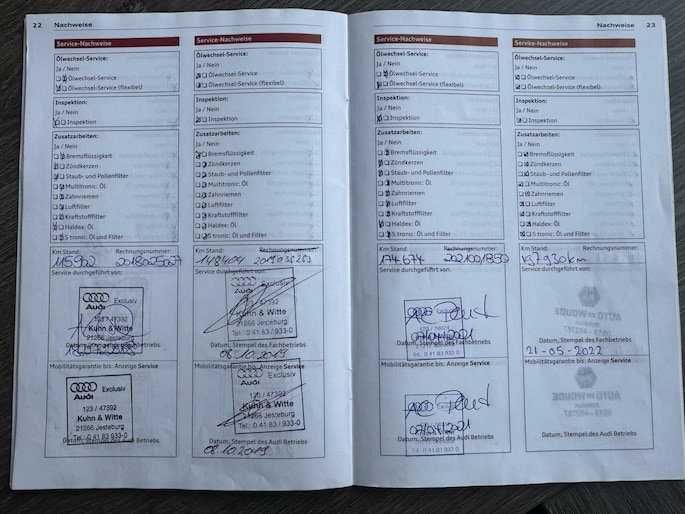 22 Nachweise
Service-Nachweise
Ölwechsel-Service:
Ja / Nein
Ölwechsel-Service
Ölwechsel-Service (flexibel)
Inspektion:
Ja / Nein
Inspektion
Zusatzarbeiten:
Ja / Nein
Bremsflüssigkeit
Zündkerzen
Staub- und Pollenfilter
Multitronic: Öl
Zahnriemen
Luftfilter
Kraftstofffilter
Haldex: Öl
S tronic: Öl und Filter
Km Stand: Rechnungsnummer:
115902
Service durchgeführt von:
Audi Exclusiv
123 / 47392
Kuhn & Witte
21266 Jesteburg
Datum, Stempel des Fachbetriebs
Mobilitätsgarantie bis: Anzeige Service
Audi Exclusiv
123 / 47392
Kuhn & Witte
21266 Jesteburg
Tel.: 0 41 83 / 933-0
Datum, Stempel des Audi Betriebs
Service-Nachweise
Ölwechsel-Service:
Ja / Nein
Ölwechsel-Service
Ölwechsel-Service (flexibel)
Inspektion:
Ja / Nein
Inspektion
Zusatzarbeiten:
Ja / Nein
Bremsflüssigkeit
Zündkerzen
Staub- und Pollenfilter
Multitronic: Öl
Zahnriemen
Luftfilter
Kraftstofffilter
Haldex: Öl
S tronic: Öl und Filter
Km Stand: Rechnungsnummer:
148404
Service durchgeführt von:
Audi Exclusiv
123 / 47392
Kuhn & Witte
21266 Jesteburg
Tel.: 0 41 83 / 933-0
Datum, Stempel des Fachbetriebs
08.10.2019
Mobilitätsgarantie bis: Anzeige Service
Audi Exclusiv
123 / 47392
Kuhn & Witte
21266 Jesteburg
Tel.: 0 41 83 / 933-0
Datum, Stempel des Audi Betriebs
08.10.2019
Nachweise 23
Service-Nachweise
Ölwechsel-Service:
Ja / Nein
Ölwechsel-Service
Ölwechsel-Service (flexibel)
Inspektion:
Ja / Nein
Inspektion
Zusatzarbeiten:
Ja / Nein
Bremsflüssigkeit
Zündkerzen
Staub- und Pollenfilter
Multitronic: Öl
Zahnriemen
Luftfilter
Kraftstofffilter
Haldex: Öl
S tronic: Öl und Filter
Km Stand: Rechnungsnummer:
174674
Service durchgeführt von:
Datum, Stempel des Fachbetriebs
Mobilitätsgarantie bis: Anzeige Service
Datum, Stempel des Audi Betriebs
Service-Nachweise
Ölwechsel-Service:
Ja / Nein
Ölwechsel-Service
Ölwechsel-Service (flexibel)
Inspektion:
Ja / Nein
Inspektion
Zusatzarbeiten:
Ja / Nein
Bremsflüssigkeit
Zündkerzen
Staub- und Pollenfilter
Multitronic: Öl
Zahnriemen
Luftfilter
Kraftstofffilter
Haldex: Öl
S tronic: Öl und Filter
Km Stand: Rechnungsnummer:
197930km
Service durchgeführt von:
Datum, Stempel des Fachbetriebs
21-05-2022
Mobilitätsgarantie bis: Anzeige Service
Datum, Stempel des Audi Betriebs